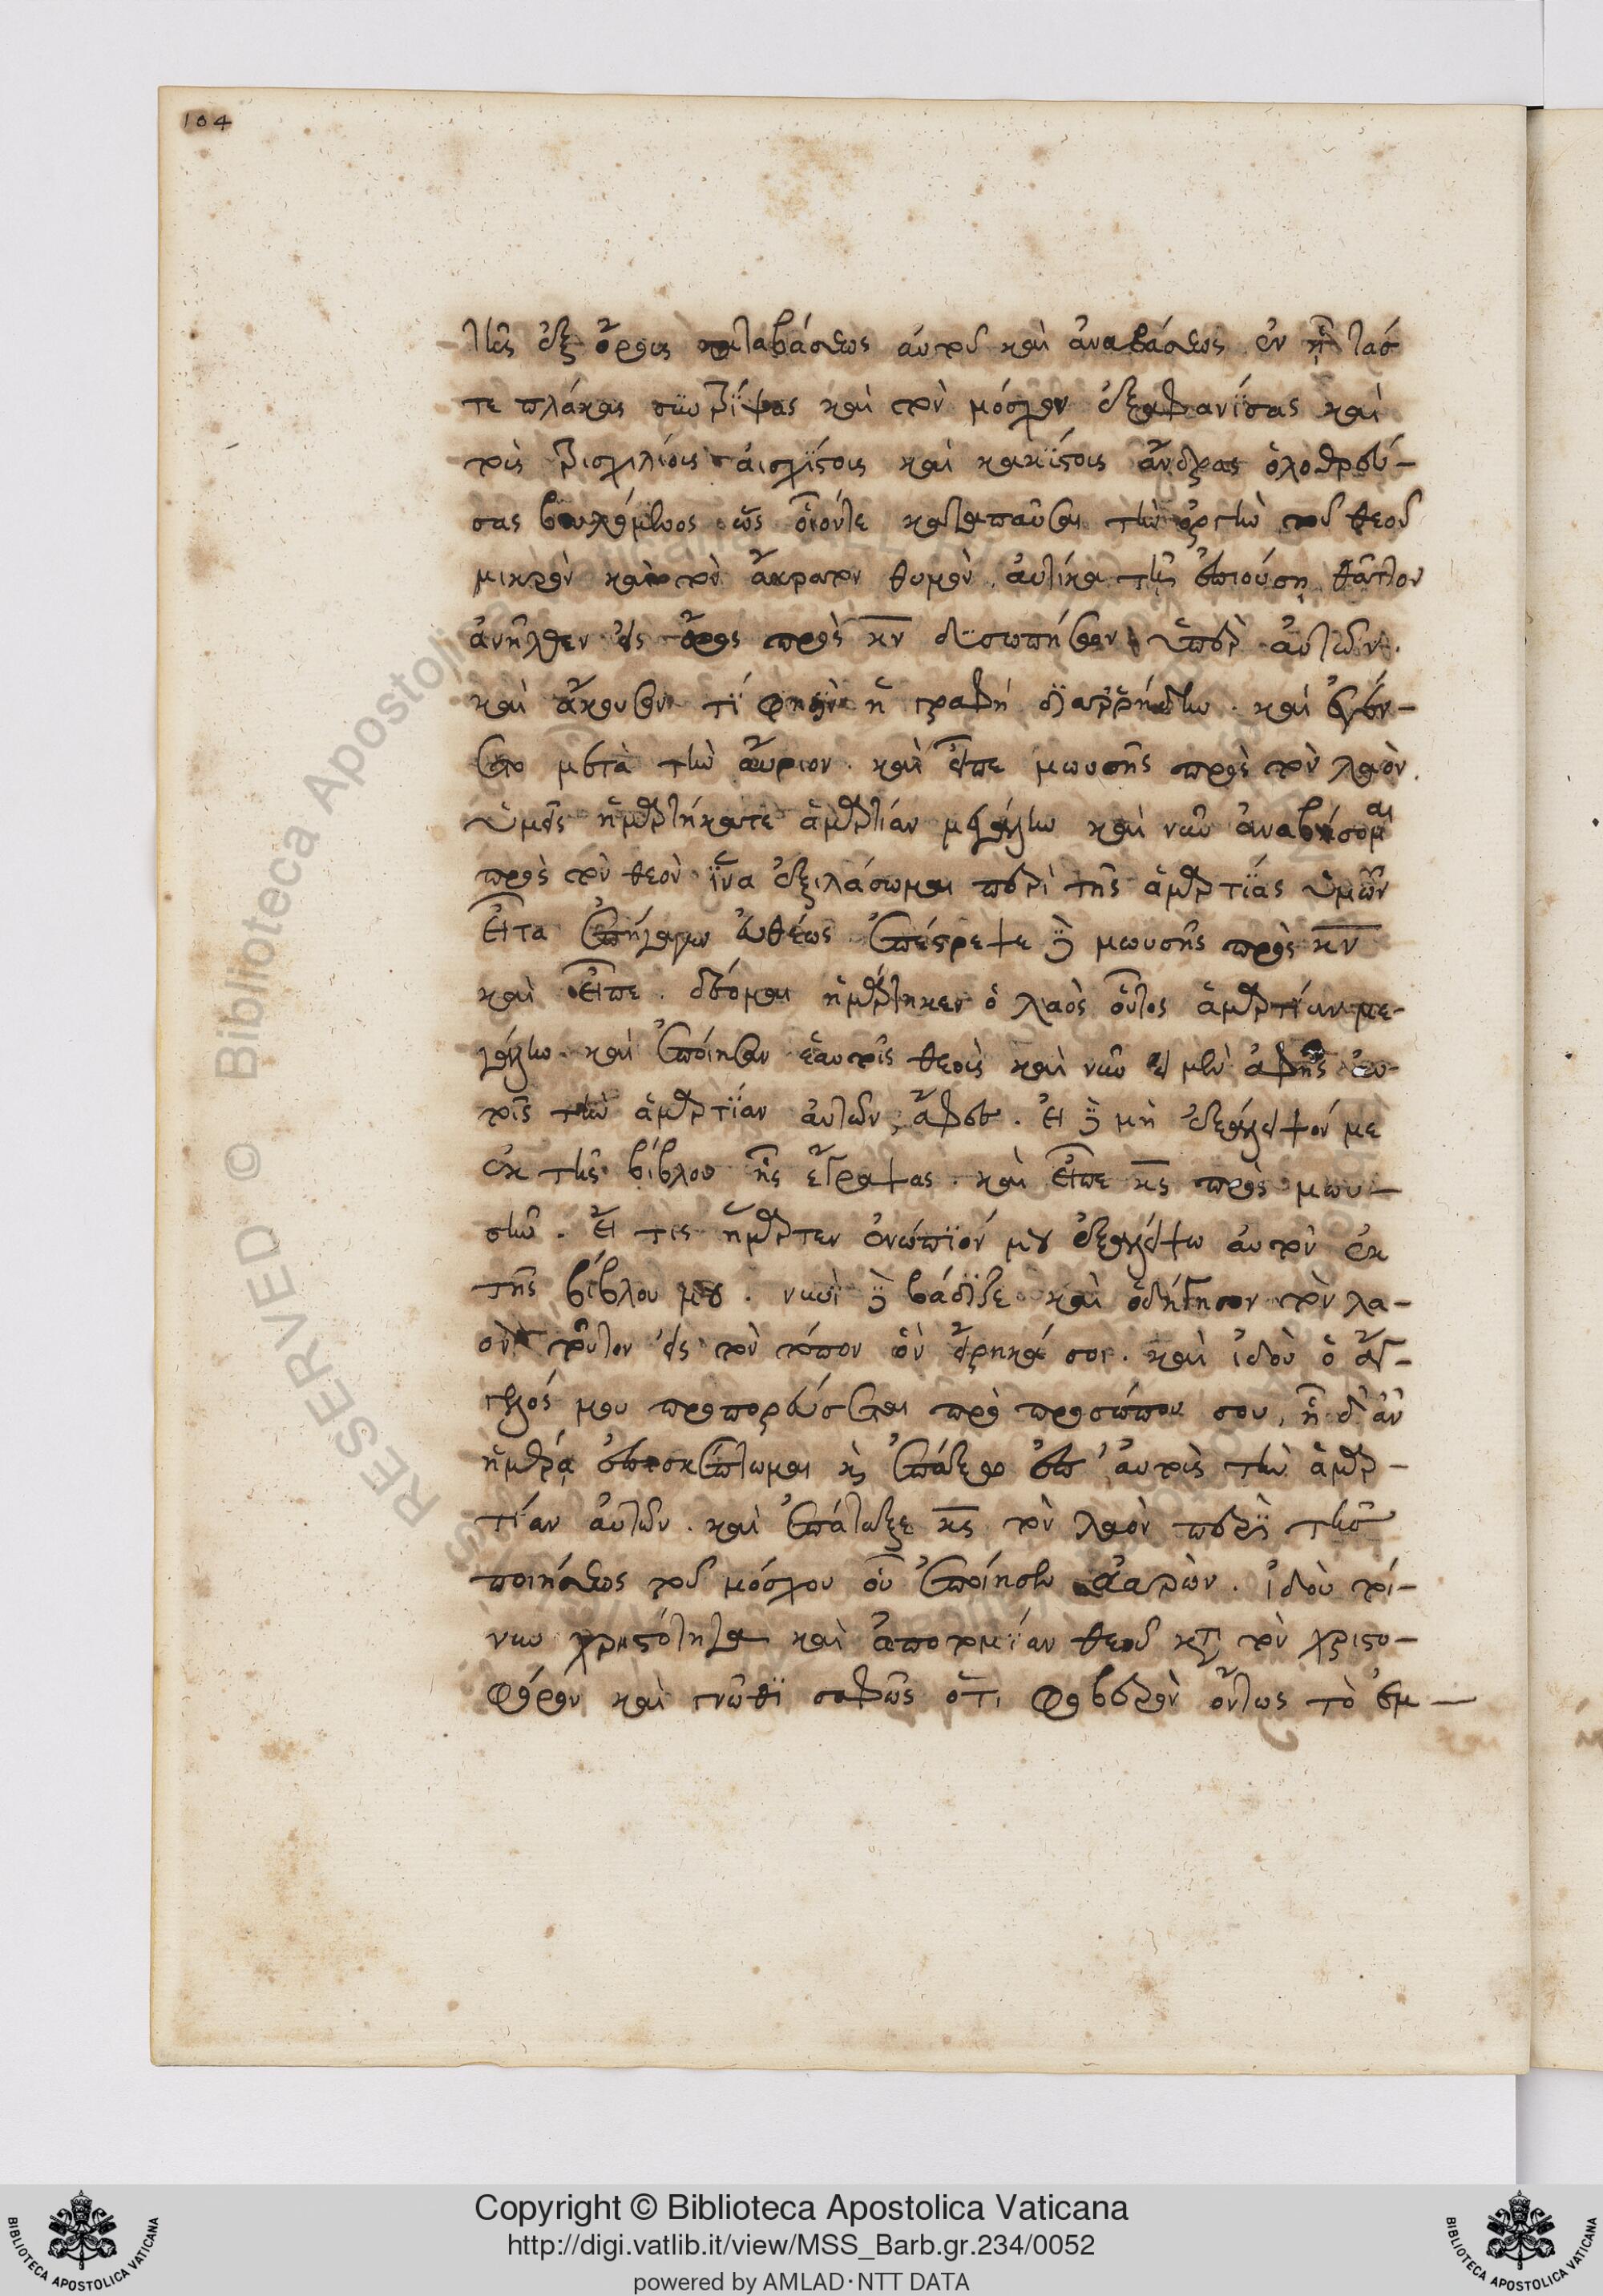 104
τῆς ἐξ ὄρους καταβάσεως αὐτοῦ καὶ ἀναβάσεως ἐν ᾗ τάσ
τε πλάκας συνρίψας καὶ τὸν μόσχον ἐξαφανίσας καὶ
τοὺς τρισχιλίους αἰσχίστους καὶ κακίστους ἄνδρας ὀλοθρεύ-
σας βουλόμενος ὡς οἷόντε καταπαῦσαι τὴν ὀργὴν τοῦ θεοῦ
μικρὸν καὶ τὸν ἄκρατον θυμὸν αὐτίκα τῇ ἐπιούσῃ θᾶττον
ἀνῆλθεν εἰς ὄρος πρὸς κν δυσωπήσων ὑπὲρ αὐτῶν.
καὶ ἄκουσον τί φησὶν ἡ γραφὴ διαρρήδην. καὶ ἐγέν-
ετο μετὰ τὴν αὔριον. καὶ εἶπε μωυσῆς πρὸς τὸν λαὸν.
ὑμεῖς ἡμαρτήκατε ἁμαρτίαν μεγάλην καὶ νῦν ἀναβήσομαι
πρὸς τὸν θεὸν ἵνα ἐξιλάσωμαι περὶ τῆς ἁμαρτίας ὑμῶν
εἶτα ἐπήγαγεν εὐθέως. ἐπέστρεψε δὲ μωυσῆς πρὸς κν
καὶ εἶπε. δέομαι ἡμάρτηκεν ὁ λαὸς οὗτος ἁμαρτίαν με-
γάλην. καὶ ἐποίησαν ἑαυτοῖς θεοὺς καὶ νῦν εἰ μὲν ἀφῇς αὐ-
τοῖς τὴν ἁμαρτίαν αὐτῶν, ἄφες. εἰ δὲ μὴ ἐξάλειψόν με
ἐκ τῆς βίβλου ἧς ἔγραψας. καὶ εἶπε κς πρὸς μωυ-
σῆν. εἴ τις ἥμαρτεν ἐνώπιόν μου ἐξαλείψω αὐτὸν ἐκ
τῆς βίβλου μου. νυνὶ δὲ βάδιζε καὶ ὁδήγησον τὸν λα-
ὸν τοῦτον εἰς τὸν τόπον ὃν εἴρηκά σοι. καὶ ἰδοὺ ὁ ἄγ-
γελός μου προπορεύσεται πρὸ προσώπου σου, ᾗ δ' ἂν
ἡμέρᾳ ἐπισκέπτωμαι κ ἐπάξω ἐπ' αὐτοὺς τὴν ἁμαρ-
τίαν αὐτῶν. καὶ ἐπάταξε κς τὸν λαὸν περὶ τῆς
ποιήσεως τοῦ μόσχου οὗ ἐποίησεν ἀαρὼν. ἰδοὺ τοί-
νυν χρηστότητα καὶ ἀποτομίαν θεοῦ κατὰ τὸν χριστο-
φόρον καὶ γνῶθι σαφῶς ὅτι φοβερὸν ὄντως τὸ ἐμ-
RESERVED © Biblioteca Apostolica
Copyright © Biblioteca Apostolica Vaticana
http://digi.vatlib.it/view/MSS_Barb.gr.234/0052
powered by AMLAD·NTT DATA
BIBLIOTECA APOSTOLICA VATICANA
BIBLIOTECA APOSTOLICA VATICANA